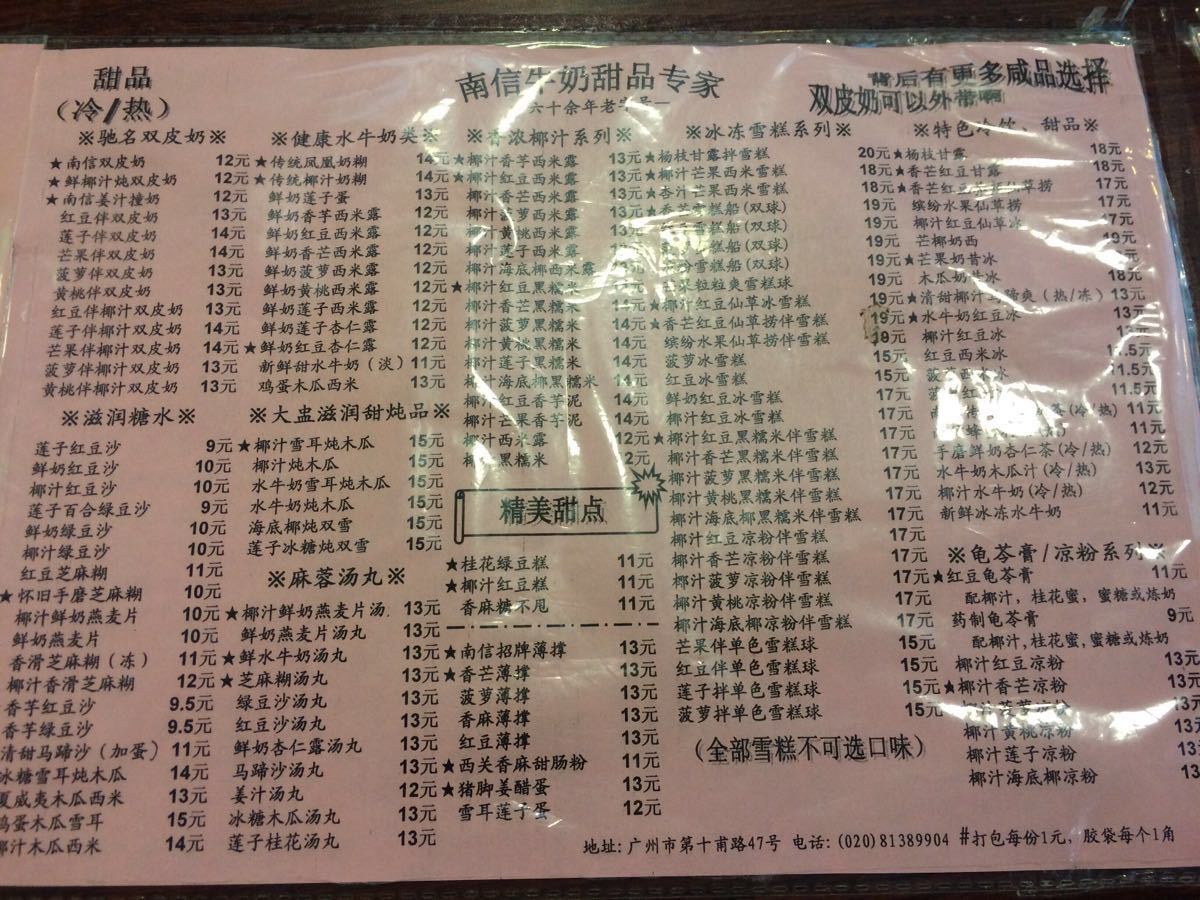 甜品
(冷/热)
南信牛奶甜品专家
六十余年老字号一
背后有更多咸品选择
双皮奶可以外带啊
※驰名双皮奶※
★南信双皮奶 12元
★鲜椰汁炖双皮奶 12元
★南信姜汁撞奶 12元
红豆伴双皮奶 13元
莲子伴双皮奶 14元
芒果伴双皮奶 14元
菠萝伴双皮奶 13元
黄桃伴双皮奶 13元
红豆伴椰汁双皮奶 13元
莲子伴椰汁双皮奶 14元
芒果伴椰汁双皮奶 14元
菠萝伴椰汁双皮奶 13元
黄桃伴椰汁双皮奶 13元
※滋润糖水※
莲子红豆沙 9元
鲜奶红豆沙 10元
椰汁红豆沙 10元
莲子百合绿豆沙 9元
鲜奶绿豆沙 10元
椰汁绿豆沙 10元
红豆芝麻糊 11元
★怀旧手磨芝麻糊 10元
椰汁鲜奶燕麦片 10元
鲜奶燕麦片 10元
香滑芝麻糊(冻) 11元
椰汁香滑芝麻糊 12元
香芋红豆沙 9.5元
香芋绿豆沙 9.5元
清甜马蹄沙(加蛋) 11元
冰糖雪耳炖木瓜 14元
夏威夷木瓜西米 13元
鸡蛋木瓜雪耳 15元
椰汁木瓜西米 14元
※健康水牛奶类※
★传统凤凰奶糊 14元
★传统椰汁奶糊 14元
鲜奶莲子蛋 13元
鲜奶香芋西米露 12元
鲜奶红豆西米露 12元
鲜奶香芒西米露 12元
鲜奶菠萝西米露 12元
鲜奶黄桃西米露 12元
鲜奶莲子西米露 12元
鲜奶莲子杏仁露 12元
★鲜奶红豆杏仁露 12元
新鲜甜水牛奶(淡) 11元
鸡蛋木瓜西米 13元
※大盅滋润甜炖品※
★椰汁雪耳炖木瓜 15元
椰汁炖木瓜 15元
水牛奶雪耳炖木瓜 15元
水牛奶炖木瓜 15元
海底椰炖双雪 15元
莲子冰糖炖双雪 15元
※麻蓉汤丸※
★椰汁鲜奶燕麦片汤. 13元
鲜奶燕麦片汤丸 13元
★鲜水牛奶汤丸 13元
★芝麻糊汤丸 13元
绿豆沙汤丸 13元
红豆沙汤丸 13元
鲜奶杏仁露汤丸 13元
马蹄沙汤丸 13元
姜汁汤丸 12元
冰糖木瓜汤丸 13元
莲子桂花汤丸 13元
※香浓椰汁系列※
★椰汁香芋西米露 13元
★椰汁红豆西米露 13元
椰汁香芒西米露 13元
椰汁菠萝西米露 13元
椰汁黄桃西米露
椰汁莲子西米露
椰汁海底椰西米露
★椰汁红豆黑糯米
椰汁香芒黑糯米
椰汁菠萝黑糯米 14元
椰汁黄桃黑糯米 14元
椰汁莲子黑糯米 14元
椰汁海底椰黑糯米 14元
椰汁红豆香芋泥
椰汁芒果香芋泥
椰汁西米露 12元
椰汁黑糯米 12元
精美甜点
★桂花绿豆糕 11元
★椰汁红豆糕 11元
香麻糖不甩 11元
★南信招牌薄撑 13元
★香芒薄撑 13元
菠萝薄撑 13元
香麻薄撑 13元
红豆薄撑 13元
★西关香麻甜肠粉 11元
★猪脚姜醋蛋 13元
雪耳莲子蛋 12元
※冰冻雪糕系列※
★杨枝甘露拌雪糕 20元
★椰汁芒果西米雪糕 18元
★杏汁芒果西米雪糕 18元
★香芒雪糕船(双球) 19元
雪糕船(双球) 19元
雪糕船(双球) 19元
雪糕船(双球) 19元
粒粒爽雪糕球 19元
★椰汁红豆仙草冰雪糕 19元
★香芒红豆仙草捞伴雪糕 19元
缤纷水果仙草捞伴雪糕 19元
菠萝冰雪糕 15元
红豆冰雪糕 15元
椰汁红豆冰雪糕 17元
★椰汁红豆黑糯米伴雪糕 17元
椰汁香芒黑糯米伴雪糕 17元
椰汁菠萝黑糯米伴雪糕 17元
椰汁黄桃黑糯米伴雪糕 17元
椰汁海底椰黑糯米伴雪糕 17元
椰汁红豆凉粉伴雪糕 17元
椰汁香芒凉粉伴雪糕 17元
椰汁菠萝凉粉伴雪糕 17元
椰汁黄桃凉粉伴雪糕 17元
椰汁海底椰凉粉伴雪糕 17元
芒果伴单色雪糕球 15元
红豆伴单色雪糕球 15元
莲子拌单色雪糕球 15元
菠萝拌单色雪糕球 15元
(全部雪糕不可选口味)
※特色冷饮、甜品※
★杨枝甘露 18元
★香芒红豆甘露 18元
★香芒红豆仙草捞 17元
缤纷水果仙草捞 17元
椰汁红豆仙草冰 17元
芒椰奶西 19元
★芒果奶昔冰
木瓜奶昔冰 18元
★清甜椰汁马蹄爽(热/冻) 13元
★水牛奶红豆冰 13元
椰汁红豆冰 13元
红豆西米冰 11.5元
菠萝西米冰 11元
11.5元
(冷/热) 11元
11元
手磨鲜奶杏仁茶(冷/热) 12元
水牛奶木瓜汁(冷/热) 13元
椰汁水牛奶(冷/热) 12元
新鲜冰冻水牛奶 11元
※龟苓膏/凉粉系列※
★红豆龟苓膏 11元
配椰汁,桂花蜜,蜜糖或炼奶
药制龟苓膏 9元
配椰汁,桂花蜜,蜜糖或炼奶
椰汁红豆凉粉 13元
★椰汁香芒凉粉 13元
椰汁菠萝凉粉 13元
椰汁黄桃凉粉 13元
椰汁莲子凉粉
椰汁海底椰凉粉 13
地址: 广州市第十甫路47号 电话: (020)81389904 #打包每份1元, 胶袋每个1角